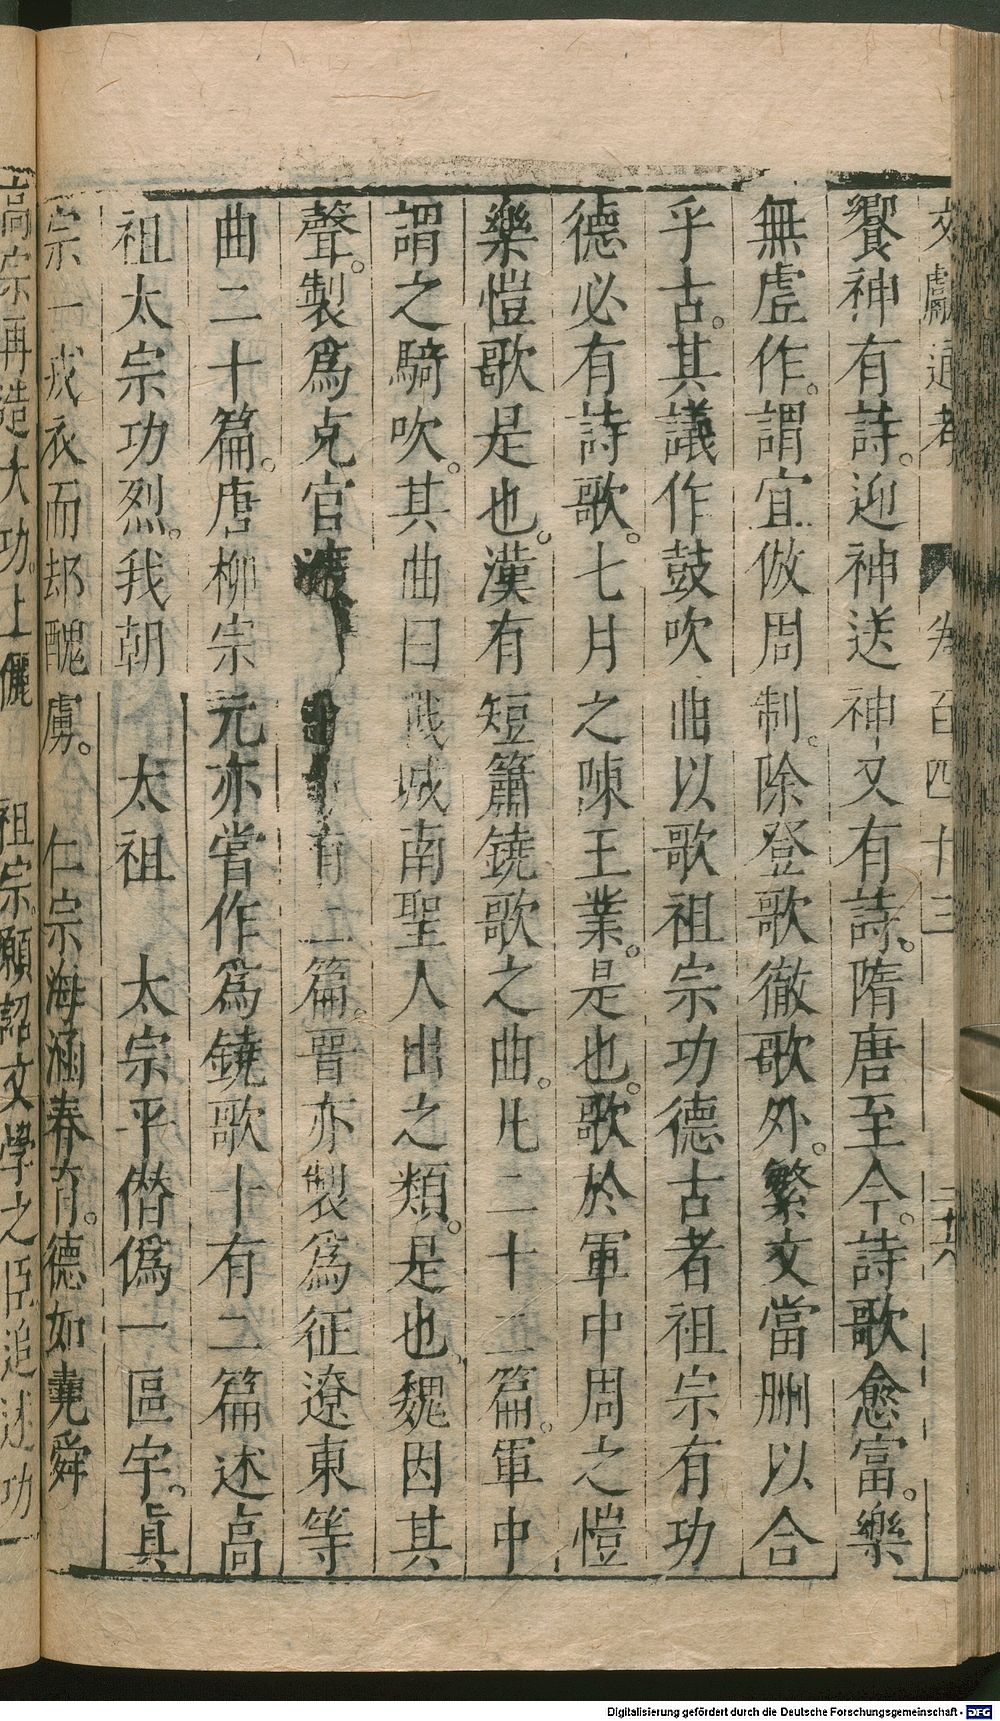 文獻通考 卷百四十三 二十六
饗神有詩。迎神送神又有詩。隋唐至今。詩歌愈富。樂
無虛作。謂宜倣周制。除登歌徹歌外。繁文當刪以合
乎古。其議作鼓吹曲以歌祖宗功德古者祖宗有功
德必有詩歌。七月之陳王業。是也。歌於軍中周之愷
樂愷歌是也。漢有短簫鐃歌之曲。凡二十二篇。軍中
謂之騎吹。其曲曰戰城南聖人出之類。是也。魏因其
聲。製爲克官渡 有二篇。晉亦製爲征遼東等
曲二十篇。唐柳宗元亦嘗作爲鐃歌十有二篇述高
祖太宗功烈。我朝 太祖 太宗平僭僞一區宇。真
宗一戎衣而却醜虜。 仁宗海涵春育。德如堯舜
高宗再造大功。上儷 祖宗。願詔文學之臣追述功
Digitalisierung gefördert durch die Deutsche Forschungsgemeinschaft - DFG